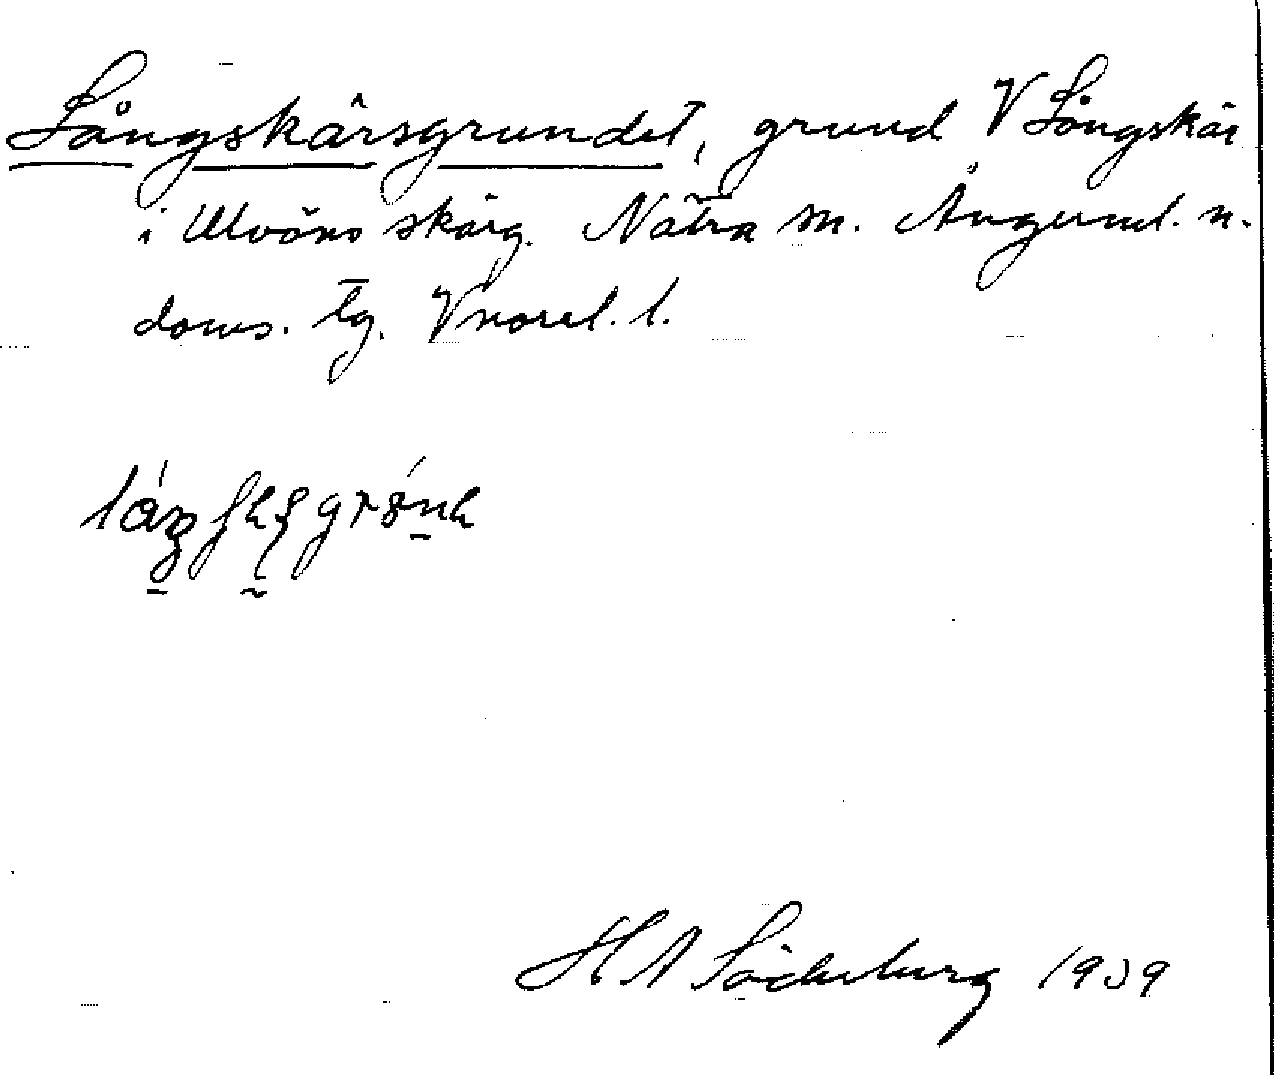 Långskärsgrundet, grund V Långskär
i Ulvöns skärg. Nätra sn. Ångerml. n.
doms. tg. V norrl. l.
H A Söderberg 1939